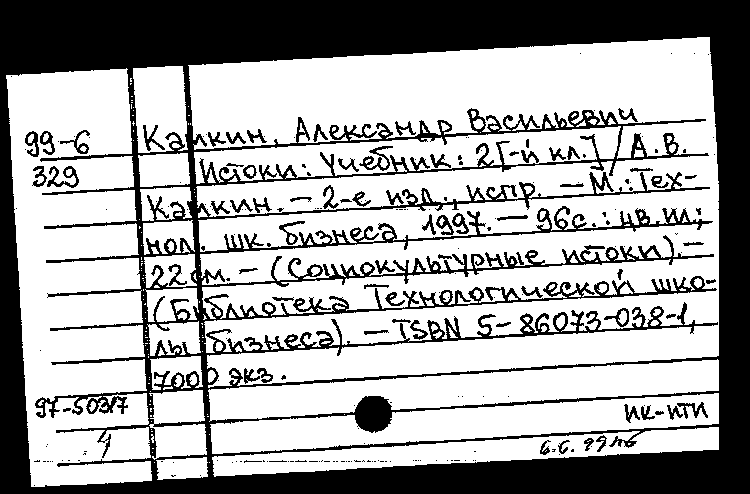 99-6 Камкин, Александр Васильевич
329 Истоки: Учебник: 2 [-й кл.] / А.В.
Камкин. — 2-е изд., испр. — М.: Тех-
нол. шк. бизнеса, 1997. — 96с.: цв.ил;
22 см. — (Социокультурные истоки). —
(Библиотека Технологической шко-
лы бизнеса). — ISBN 5-86073-038-1,
7000 экз.
97-50317
4 ИК-ИТИ
6.6.99